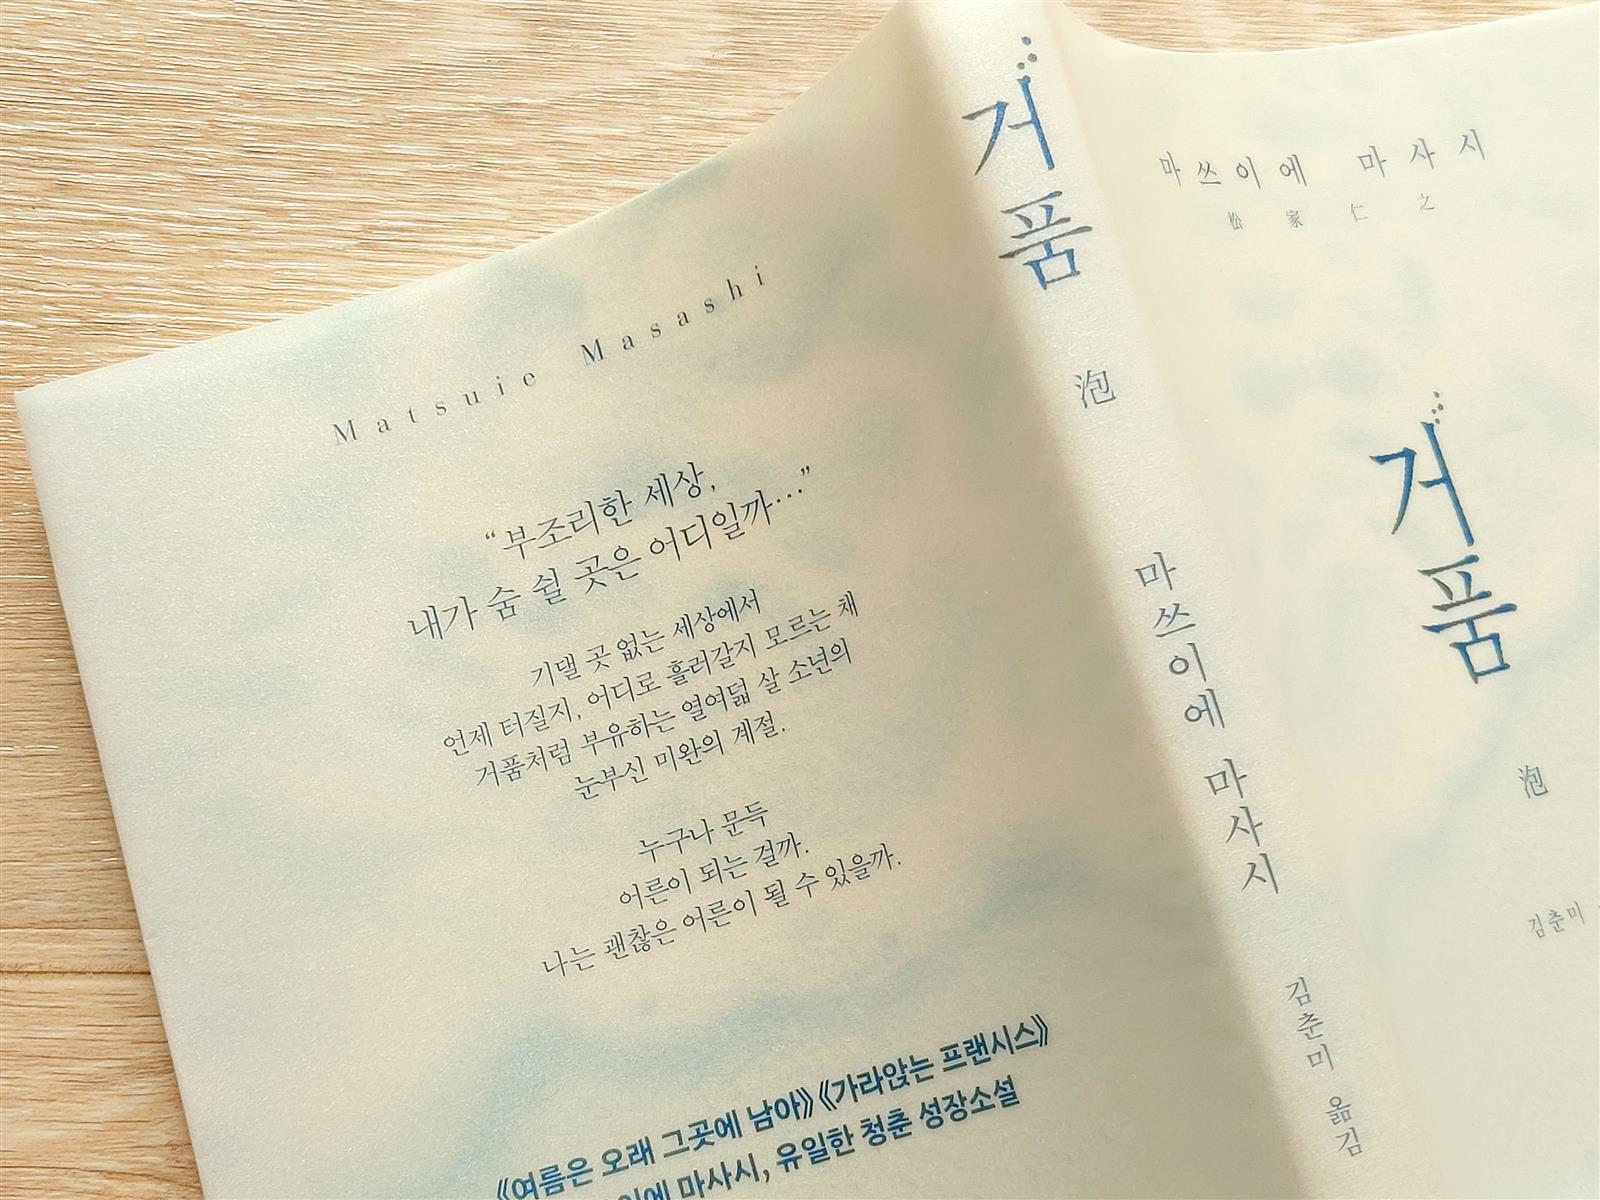 Matsuie Masashi
“부조리한 세상,
내가 숨 쉴 곳은 어디일까…”
기댈 곳 없는 세상에서
언제 터질지, 어디로 흘러갈지 모르는 채
거품처럼 부유하는 열여덟 살 소년의
눈부신 미완의 계절.
누구나 문득
어른이 되는 걸까.
나는 괜찮은 어른이 될 수 있을까.
《여름은 오래 그곳에 남아》《가라앉는 프랜시스》
마사시, 유일한 청춘 성장소설
거품
泡
마쓰이에 마사시
김춘미 옮김
마쓰이에 마사시
松家仁之
거품
泡
김춘미